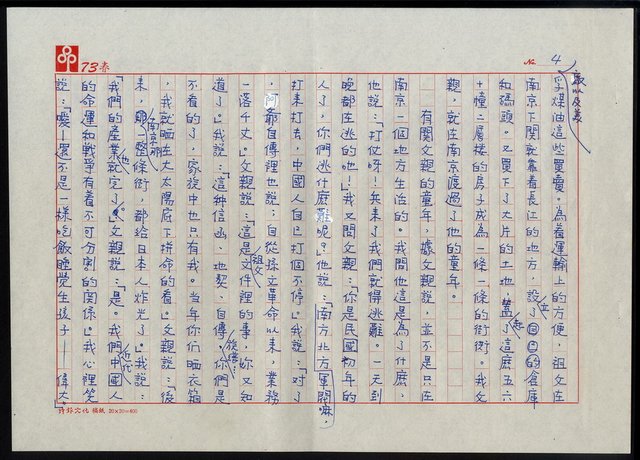 73春
No. 4
廠以及美
孚煤油這些買賣。為着運輸上的方便,祖父在
南京下關就靠着長江的地方,設了自己的倉庫
和碼頭。又買下了大片的土地,蓋了這麼五六
十幢二層樓的房子成為一條一條的街衖。我父
親,就在南京渡過了他的童年。
有関父親的童年,據父親說,並不是只在
南京一個地方生活的。我問他這是為了什麼,
他說:「打仗呀!兵来了我們就得逃難。一天到
晚都在逃的吔!」我又問父親:「你是民國初年的
人了,你們逃什麼難呢?」他說:「南方北方軍閥嘛,
打来打去,中國人自己打個不停。」我說:「对了
,阿爺自傳裡也說:自從孫文革命以来,業務
一落千丈。」父親說:「這是祖父文件裡的事,妳又知
道了。」我說:「這种信函、地契、自傳,你們是
不看的了,家族中也只有我。当年你们晒衣箱
,我就晒在大太陽底下拼命的看。」父親說:「後
来,南京那一整條街,都给日本人炸光了。」我說:
「我們的產業也就完了。」父親說:「是。我們中國人近代
的命運和戰爭有着不可分割的関係。」我心裡笑
說:「噯!還不是一樣吃飯睡觉生孩子——偉大。
詩錄文化 稿紙 20×20=400